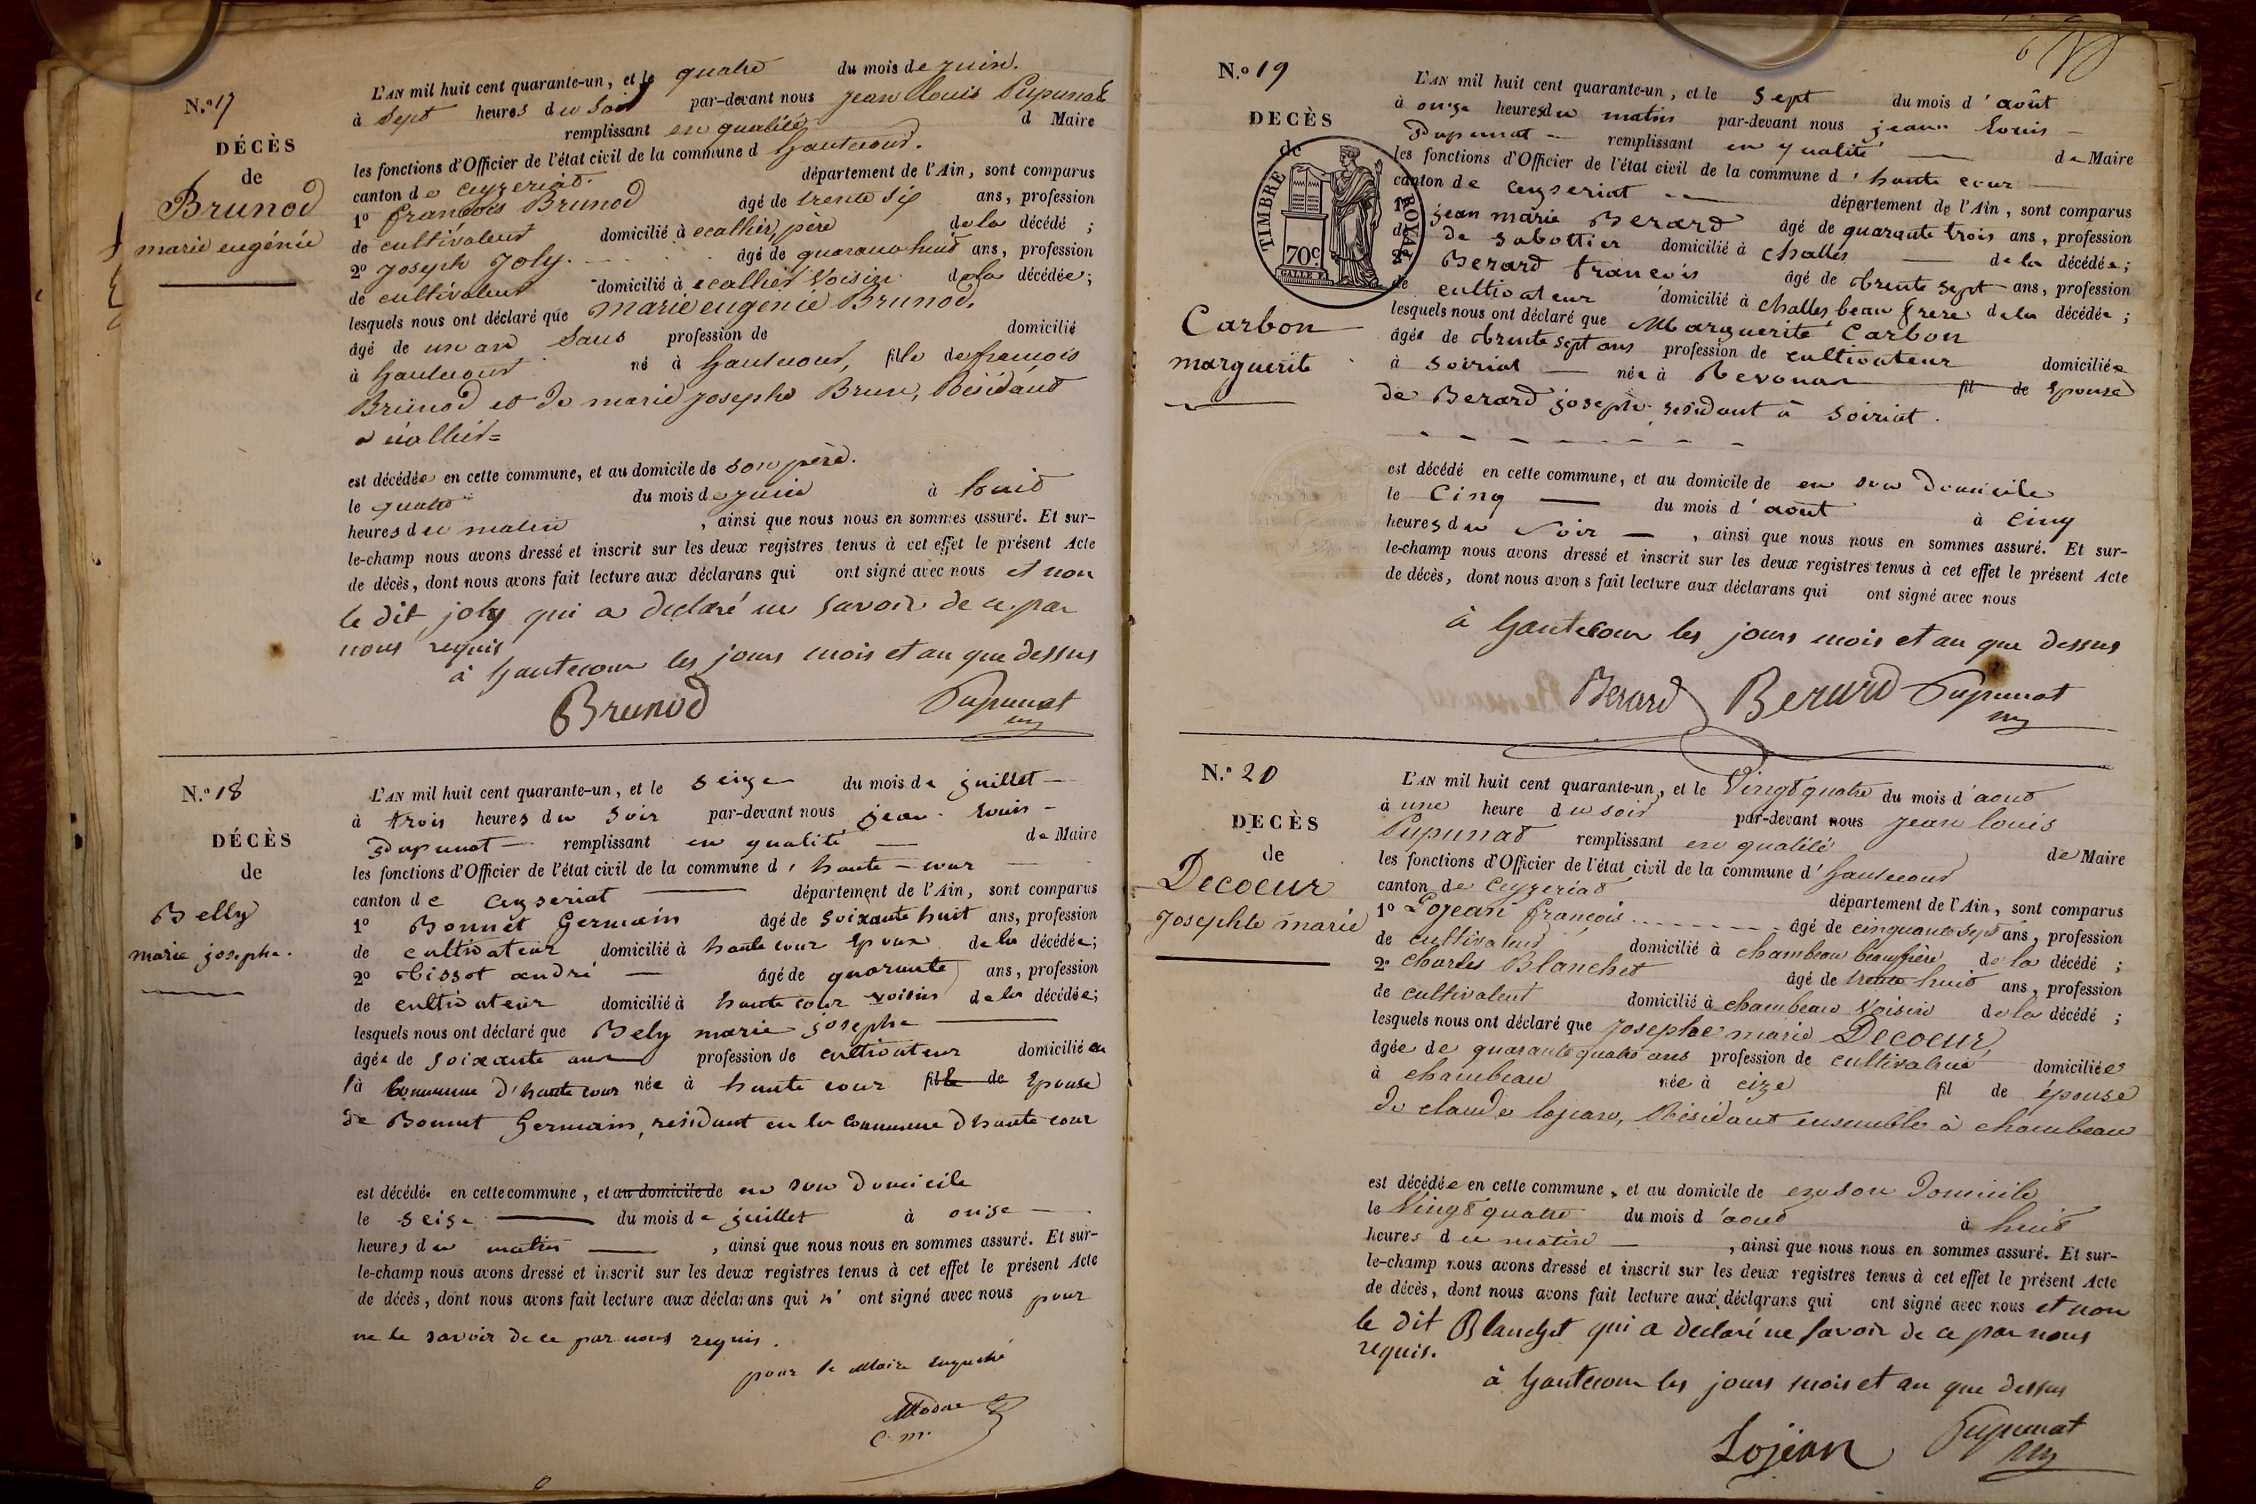 N.o 17
DÉCÈS
de
Brunod
marie eugénie
L'AN mil huit cent quarante-un, et le quatre du mois de juin.
à sept heures du soir par-devant nous jean louis Pupunat
remplissant en qualité d Maire
les fonctions d'Officier de l'état civil de la commune d hautecour.
canton de ceyzeriat. département de l'Ain, sont comparus
1o françois Brunod âgé de trente six ans, profession
de cultivateur domicilié à ecallier, père de la décédé ;
2o Joseph Joly. âgé de quarante huit ans, profession
de cultivateur domicilié à ecallier voisin de la décédée;
lesquels nous ont déclaré que marie eugenie Brunod.
âgé de un an sans profession de domicilié
à hautecour né à hautecour, fille de françois
Brunod et de marie josephe Brun, Résidant
a écallier=
est décédée en cette commune, et au domicile de son père.
le quatre du mois de juin à huit
heures du matin , ainsi que nous nous en sommes assuré. Et sur-
le-champ nous avons dressé et inscrit sur les deux registres tenus à cet effet le présent Acte
de décès, dont nous avons fait lecture aux déclarans qui ont signé avec nous et non
le dit joly qui a declaré ne savoir de ce par
nous requis
à hautecour les jours mois et an que dessus
Brunod Pupunat
N.o 18
DÉCÈS
de
Belly
marie josephe.
L'AN mil huit cent quarante-un, et le seize du mois de juillet
à trois heures du soir par-devant nous jean louis
Pupunat remplissant en qualité de Maire
les fonctions d'Officier de l'état civil de la commune d' haute-cour
canton de ceyseriat département de l'Ain, sont comparus
1o Bonnet Germain âgé de soixante huit ans, profession
de cultivateur domicilié à haute cour epoux de la décédée;
2o tissot andré âgé de quarante ans, profession
de cultivateur domicilié à haute cour voisin de la décédée;
lesquels nous ont déclaré que Bely marie josephe
âgée de soixante ans profession de cultivateur domiciliée en
la commune d'haute cour née à haute cour fille de Epouse
de Bonnet Germain, residant en la commune d'haute cour
est décédée en cette commune, et au domicile de en son domicile
le seise du mois de juillet à onise
heures du matin , ainsi que nous nous en sommes assuré. Et sur-
le-champ nous avons dressé et inscrit sur les deux registres tenus à cet effet le présent Acte
de décès, dont nous avons fait lecture aux déclarans qui n' ont signé avec nous pour
ne le savoir de ce par nous requis.
pour le Maire
C. m.
N.o 19
DECÈS
de
TIMBRE ROYAL
70c
Carbon
marguerite
L'AN mil huit cent quarante-un, et le sept du mois d' août
à onze heures du matin par-devant nous jean louis
Pupunat remplissant en qualité de Maire
les fonctions d'Officier de l'état civil de la commune d' haute cour
canton de ceyseriat département de l'Ain, sont comparus
1o jean marie Berard âgé de quarante trois ans, profession
de de sabottier domicilié à challes de la décédée;
2o Berard francois âgé de trente sept ans, profession
de cultivateur domicilié à challes beau frere de la décédée ;
lesquels nous ont déclaré que Marguerite Carbon
âgée de trente sept ans profession de cultivateur domiciliée
à soiriat née à Revonas fil de Epouse
de Berard joseph residant à soiriat.
est décédé en cette commune, et au domicile de en son domicile
le cinq du mois d' aout à cinq
heures du soir , ainsi que nous nous en sommes assuré. Et sur-
le-champ nous avons dressé et inscrit sur les deux registres tenus à cet effet le présent Acte
de décès, dont nous avons fait lecture aux déclarans qui ont signé avec nous
à hautecour les jours mois et an que dessus
Berard Berard Pupunat
N.o 20
DECÈS
de
Decoeur
Josephte marie
L'AN mil huit cent quarante-un, et le Vingt quatre du mois d'aout
à une heure du soir par-devant nous jean louis
Pupunat remplissant en qualité de Maire
les fonctions d'Officier de l'état civil de la commune d' hautecour
canton de ceyzeriat département de l'Ain, sont comparus
1o Lojean françois âgé de cinquante sept ans, profession
de cultivateur domicilié à chambeau beaufrère de la décédé ;
2o charles Blanchet âgé de trente huit ans, profession
de cultivateur domicilié à chambeau voisin de la décédé ;
lesquels nous ont déclaré que Josephte marie Decoeur
âgée de quarante quatre ans profession de cultivatrice domiciliée
à chambeau née à cize fil de épouse
de claude lojean, Résidant ensemble à chambeau
est décédée en cette commune, et au domicile de en son domicile
le Vingt quatre du mois d'aout à huit
heures du matin , ainsi que nous nous en sommes assuré. Et sur-
le-champ nous avons dressé et inscrit sur les deux registres tenus à cet effet le présent Acte
de décès, dont nous avons fait lecture aux déclarans qui ont signé avec nous et non
le dit Blanchet qui a declaré ne savoir de ce par nous
requis.
à hautecour les jours mois et an que dessus
Lojean Pupunat